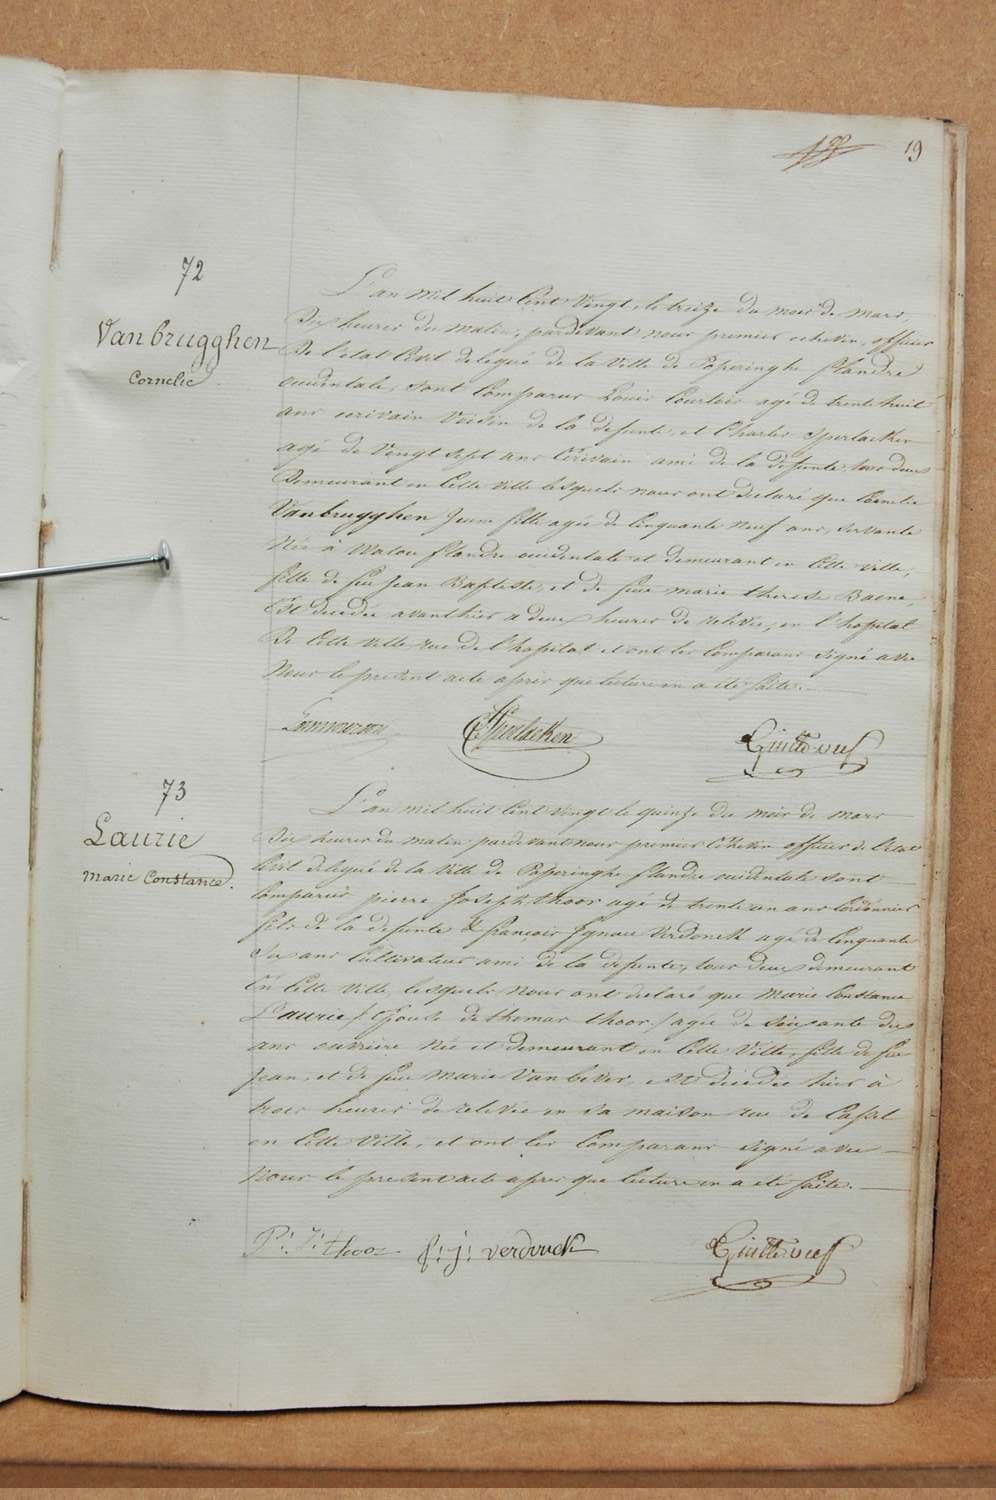 19
72
Vanbrugghen
Cornelie
L'an mil huit Cent Vingt, le treize du mois de mars,
Dix heures du matin, pardevant nous premier echevin, officier
De l'etat Civil delégué de la Ville de Poperinghe flandre
occidentale, sont Comparus Louis agé de trente huit
ans ecrivain Voisin de la defunte, et Charles Sperlaeken
agé de Vingt sept ans Ecrivain ami de la defunte, tous deux
Demeurant en Cette Ville lesquels nous ont declaré que Cornelie
Vanbrugghen Jeune fille agée de Cinquante neuf ans, servante
Née à Watou flandre occidentale et demeurant en Cette Ville,
fille de feu Jean Baptiste, et de feue marie therese Baene,
Est decedée avanthier a deux heures de relevée, en l'hopital
De Cette Ville rue de l'hopital et ont les Comparans signé avec
Nous le present acte apres que lecture en a eté faite.
73
Laurie
Marie Constance.
L'an mil huit Cent Vingt le quinze du mois de mars
Dix heures du matin pardevant nous premier Echevin officier de l'etat
Civil delegué de la Ville de Poperinghe flandre occidentale sont
Comparus pierre Joseph thoor agé de trente un ans Cordonnier
fils de la defunte & françois Ignace Verdonck agé de Cinquante
Six ans Cultivateur ami de la defunte, tous deux demeurant
En Cette Ville, lesquels Nous ont declaré que Marie Constance
Laurie / Epouse de thomas thoor / agée de soixante dix
ans ouvrière Née et demeurant en Cette Ville, fille de feu
Jean, et de feue Marie Vanbever, est decedée hier à
trois heures de relevée en sa maison rue de Cassel
en Cette Ville, et ont les Comparans signé avec
Nous le present acte apres que lecture en a eté faite.
P: J: thoor f: j: verdonck